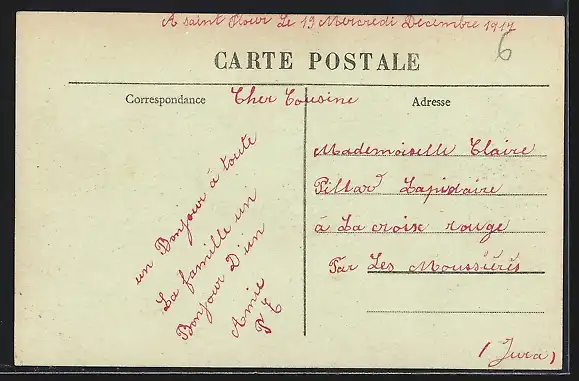 A saint Flour Le 19 Mercredi Decembre 1917
6
CARTE POSTALE
Correspondance
Cher Cousine
Adresse
un Bonjour à toute
La famille un
Bonjour D'un
Amie
P E
Mademoiselle Claire
Pillard Lapidaire
à La croix rouge
Par Les Moussières
(Jura)